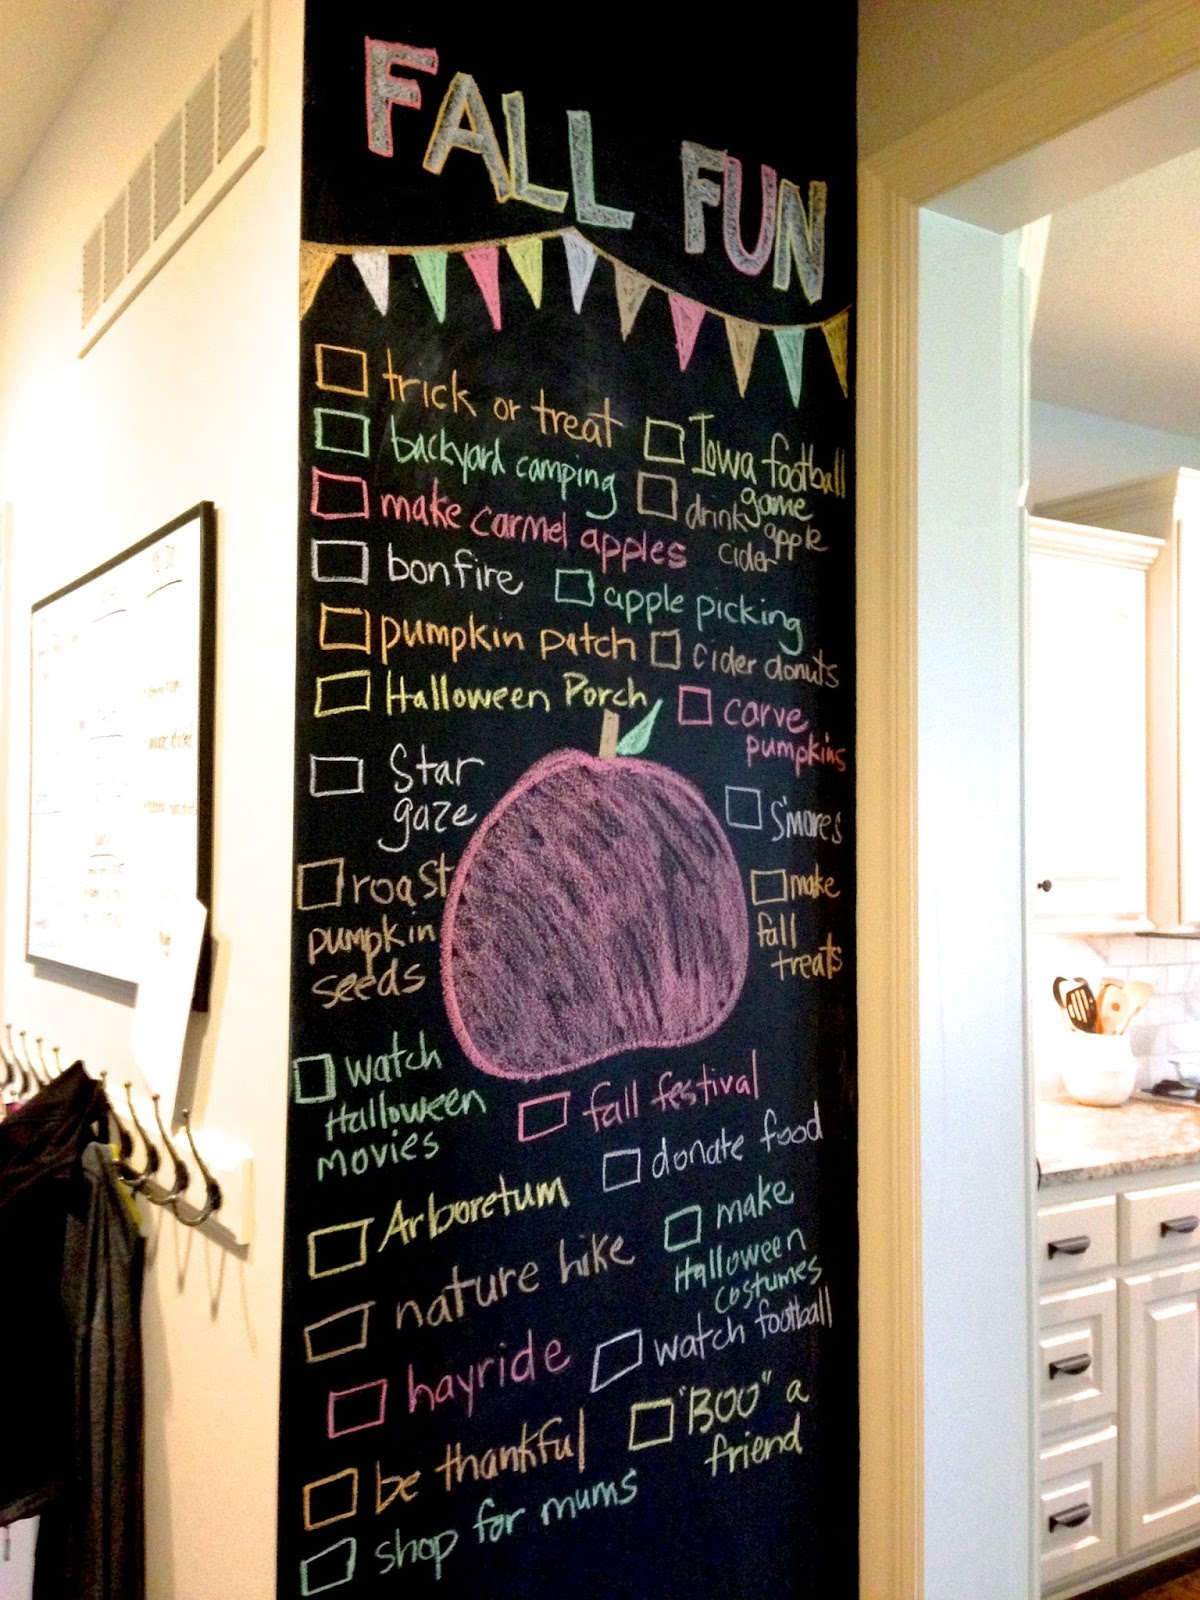 FALL FUN
trick or treat
Iowa football
game
backyard camping
drink apple
cider
make carmel apples
bonfire
apple picking
pumpkin patch
cider donuts
Halloween Porch
carve
pumpkins
Star
gaze
S'mores
roast
pumpkin
seeds
make
fall
treats
watch
Halloween
movies
fall festival
donate food
Arboretum
make
Halloween
costumes
nature hike
watch football
hayride
"BOO" a
friend
be thankful
shop for mums